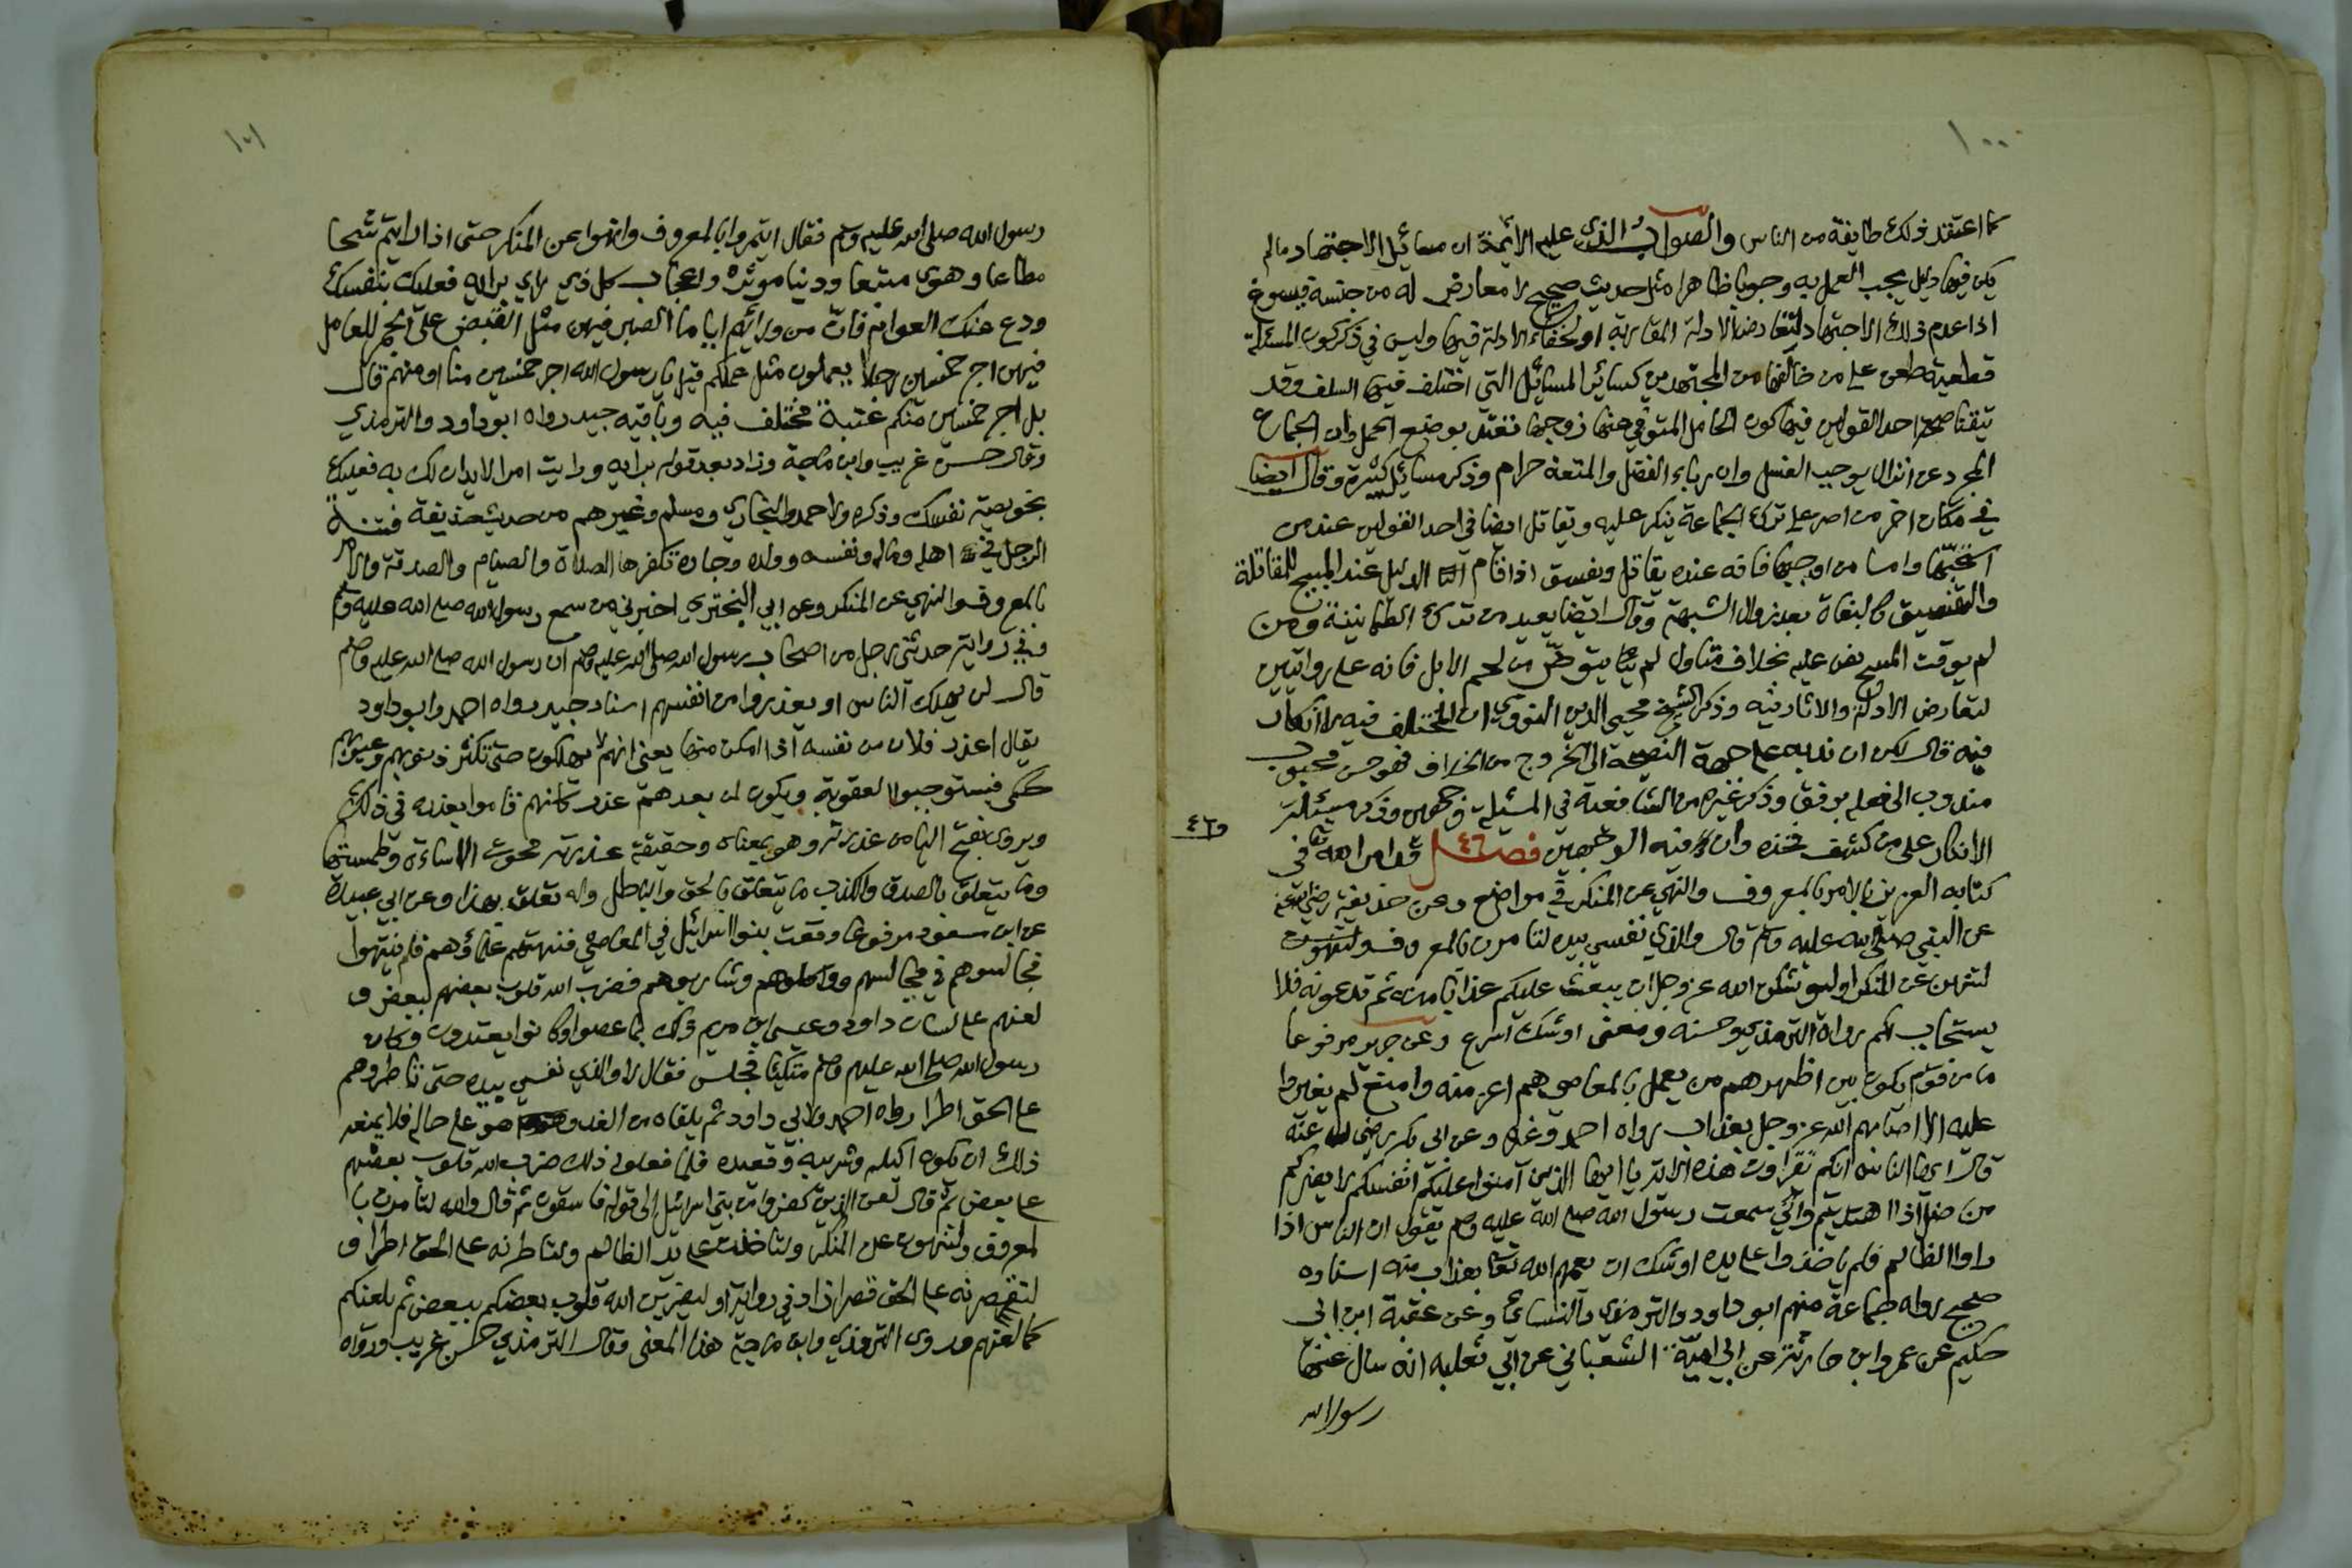 ١٠٠
كما اعتقد ذلك طايفة من الناس والصواب الذي عليه الائمة ان مسائل الاجتهاد مالم
يكن فيها دليل يجب العمل به وجوبا ظاهرا مثل حديث صحيح لا معارض له من جنسه فيسوغ
اذا عدم ذلك الاجتهاد لتعارض الادلة المقاربة او لخفاء الادلة فيها وليس في ذكر كون المسئلة
قطعية طعن على من خالفها من المجتهدين كسائر المسائل التي اختلف فيها السلف وقد
تيقنا صحة احد القولين فيها كون الحامل المتوفى عنها زوجها تعتد بوضع الحمل وان الجماع
المجرد عن انزال يوجب الغسل وان رباء الفضل والمتعة حرام وذكر مسائل كثيرة وقال ايضا
في مكان اخر من اصر على ترك الجماعة ينكر عليه ويقاتل ايضا في احد القولين عند من
استحبها واما من اوجبها فانه عنده يقاتل ويفسق اذا قام الدليل عند المبيح للمقاتلة
والتفسيق كالبغاة بعد زوال الشبهة وقال ايضا يعيد من ترك الطمانينة ومن
لم يوقت المسح نص عليه بخلاف متاول لم يتوضّ من لحم الابل فانه على روايتين
لتعارض الادلة والاثار فيه وذكر الشيخ محيي الدين النووي ان المختلف فيه لا انكار
فيه قال لكن ان ندبه على جهة النصيحة الى الخروج من الخلاف فهو حسن محبوب
مندوب الى فعله برفق وذكر غيره من الشافعية في المسئلة وجهين وذكر مسئلة
الانكار على من كشف فخذه وان فيه الوجهين فصل ٤٦ قد امر الله تعا في
و ٤٦
كتابه العزيز بالامر بالمعروف والنهي عن المنكر في مواضع وعن حذيفة رضي الله عنه
عن النبي صلى الله عليه وسلم قال والذي نفسي بيده لتامرن بالمعروف ولتنهون
لتنهن عن المنكر او ليوشكن الله عز وجل ان يبعث عليكم عذابا منه ثم تدعونه فلا
يستجاب لكم رواه الترمذي وحسنه ومعنى اوشك اسرع وعن جرير مرفوعا
ما من قوم يكون بين اظهرهم من يعمل بالمعاصي هم اعز منه وامنع لم يغيروا
عليه الا اصابهم الله عز وجل بعذاب رواه احمد وغيره وعن ابي بكر رضي الله عنه
قال ايها الناس انكم تقراون هذه الاية يا ايها الذين آمنوا عليكم انفسكم لا يضركم
من ضل اذا اهتديتم واني سمعت رسول الله صلى الله عليه وسلم يقول ان الناس اذا
راوا الظالم فلم ياخذوا على يده اوشك ان يعمهم الله تعا بعذاب منه اسناده
صحيح رواه جماعة منهم ابو داود والترمذي والنسائي وعن عقبة ابن ابي
حكيم عن عمرو ابن حارثة عن ابي امية الشعباني عن ابي ثعلبة انه سال عنها
رسول الله
١٠١
رسول الله صلى الله عليه وسلم فقال ايتمروا بالمعروف وانهوا عن المنكر حتى اذا رايتم شحا
مطاعا وهوى متبعا ودنيا موثرة واعجاب كل ذي راي برايه فعليك بنفسك
ودع عنك العوام فان من ورائكم اياما الصبر فيهن مثل القبض على الجمر للعامل
فيهن اجر خمسين رجلا يعملون مثل عملكم قيل يا رسول الله اجر خمسين منا او منهم قال
بل اجر خمسين منكم عتبة مختلف فيه وباقيه جيد رواه ابو داود والترمذي
وقال حسن غريب وابن ماجة وزاد بعد قوله برايه ورايت امرا لايدان لك به فعليك
بخويصة نفسك وذكره ولاحمد والبخاري ومسلم وغيرهم من حديث حذيفة فتنة
الرجل في اهله وماله ونفسه وولده وجاره تكفرها الصلاة والصيام والصدقة والامر
بالمعروف والنهي عن المنكر وعن ابي البختري اخبرني من سمع رسول الله صلى الله عليه وسلم
وفي رواية حدثني رجل من اصحاب رسول الله صلى الله عليه وسلم ان رسول الله صلى الله عليه وسلم
قال لن يهلك الناس او يعذروا من انفسهم اسناد جيد رواه احمد وابو داود
يقال اعذر فلان من نفسه اذا امكن منها يعني انهم لا يهلكون حتى تكثر ذنوبهم وعيوبهم
فيستوجبوا العقوبة ويكون لمن يعذبهم عذر كانهم قاموا بعذره في ذلك
ويروى بفتح اليا من عذرته وهو بمعناه وحقيقة عذرته محوت الاساءة وطمستها
وما يتعلق بالصدق والكذب ما يتعلق بالحق والباطل وله تعلق بهذا وعن ابي عبيدة
عن ابن مسعود مرفوعا وقعت بنوا اسرائيل في المعاصي فنهتهم علماؤهم فلم ينتهوا
فجالسوهم في مجالسهم وواكلوهم وشاربوهم فضرب الله قلوب بعضهم ببعض و
لعنهم على لسان داود وعيسى ابن مريم ذلك بما عصوا وكانوا يعتدون وكان
رسول الله صلى الله عليه وسلم متكيئا فجلس فقال لا والذي نفسي بيده حتى تاطروهم
على الحق اطرا رواه احمد ولابي داود ثم يلقاه من الغد وهو على حاله فلا يمنعه
ذلك ان يكون اكيله وشريبه وقعيده فلما فعلوا ذلك ضرب الله قلوب بعضهم
على بعض ثم قال لعن الذين كفروا من بني اسرائيل الى قوله فاسقون ثم قال والله لتامرن با
لمعروف ولتنهون عن المنكر ولتاخذن على يد الظالم ولتاطرنه على الحق اطرا و
لتقصرنه على الحق قصرا زاد في رواية او ليضربن الله قلوب بعضكم ببعض ثم يلعنكم
كما لعنهم وروى الترمذي وابن ماجة هذا المعنى وقال الترمذي حسن غريب ورواه